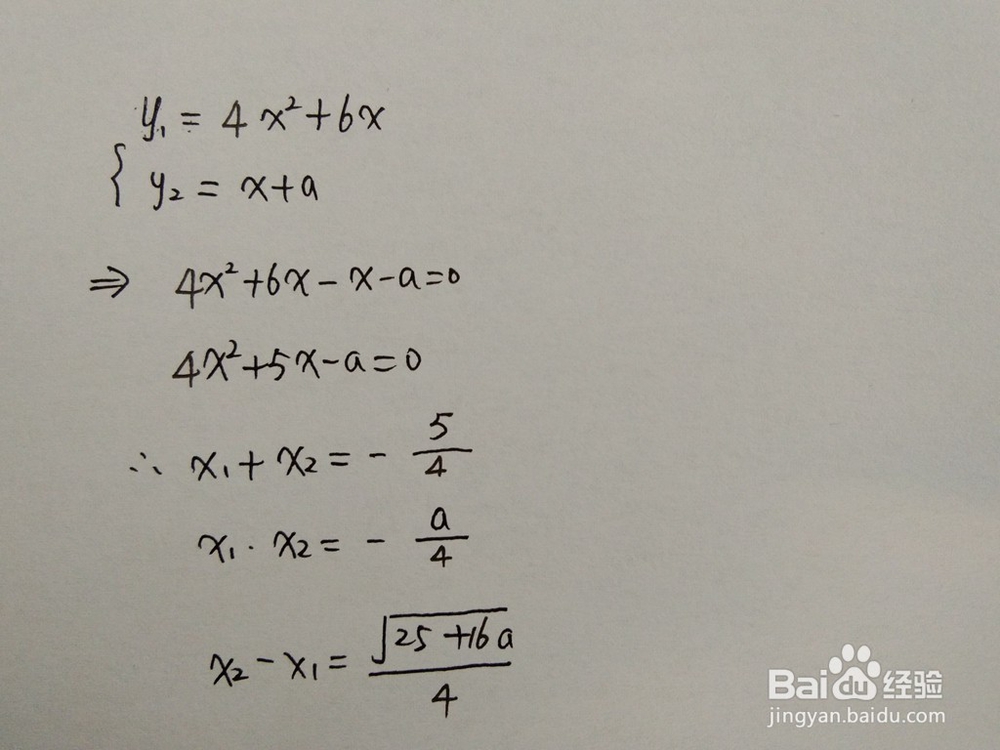 y₁ = 4x²+6x
{ y₂ = x+a
⇒ 4x²+6x-x-a=0
4x²+5x-a=0
∴ x₁+x₂ = - 5/4
x₁·x₂ = - a/4
x₂-x₁ = √(25+16a)/4
Baidu 经验
jingyan.baidu.com